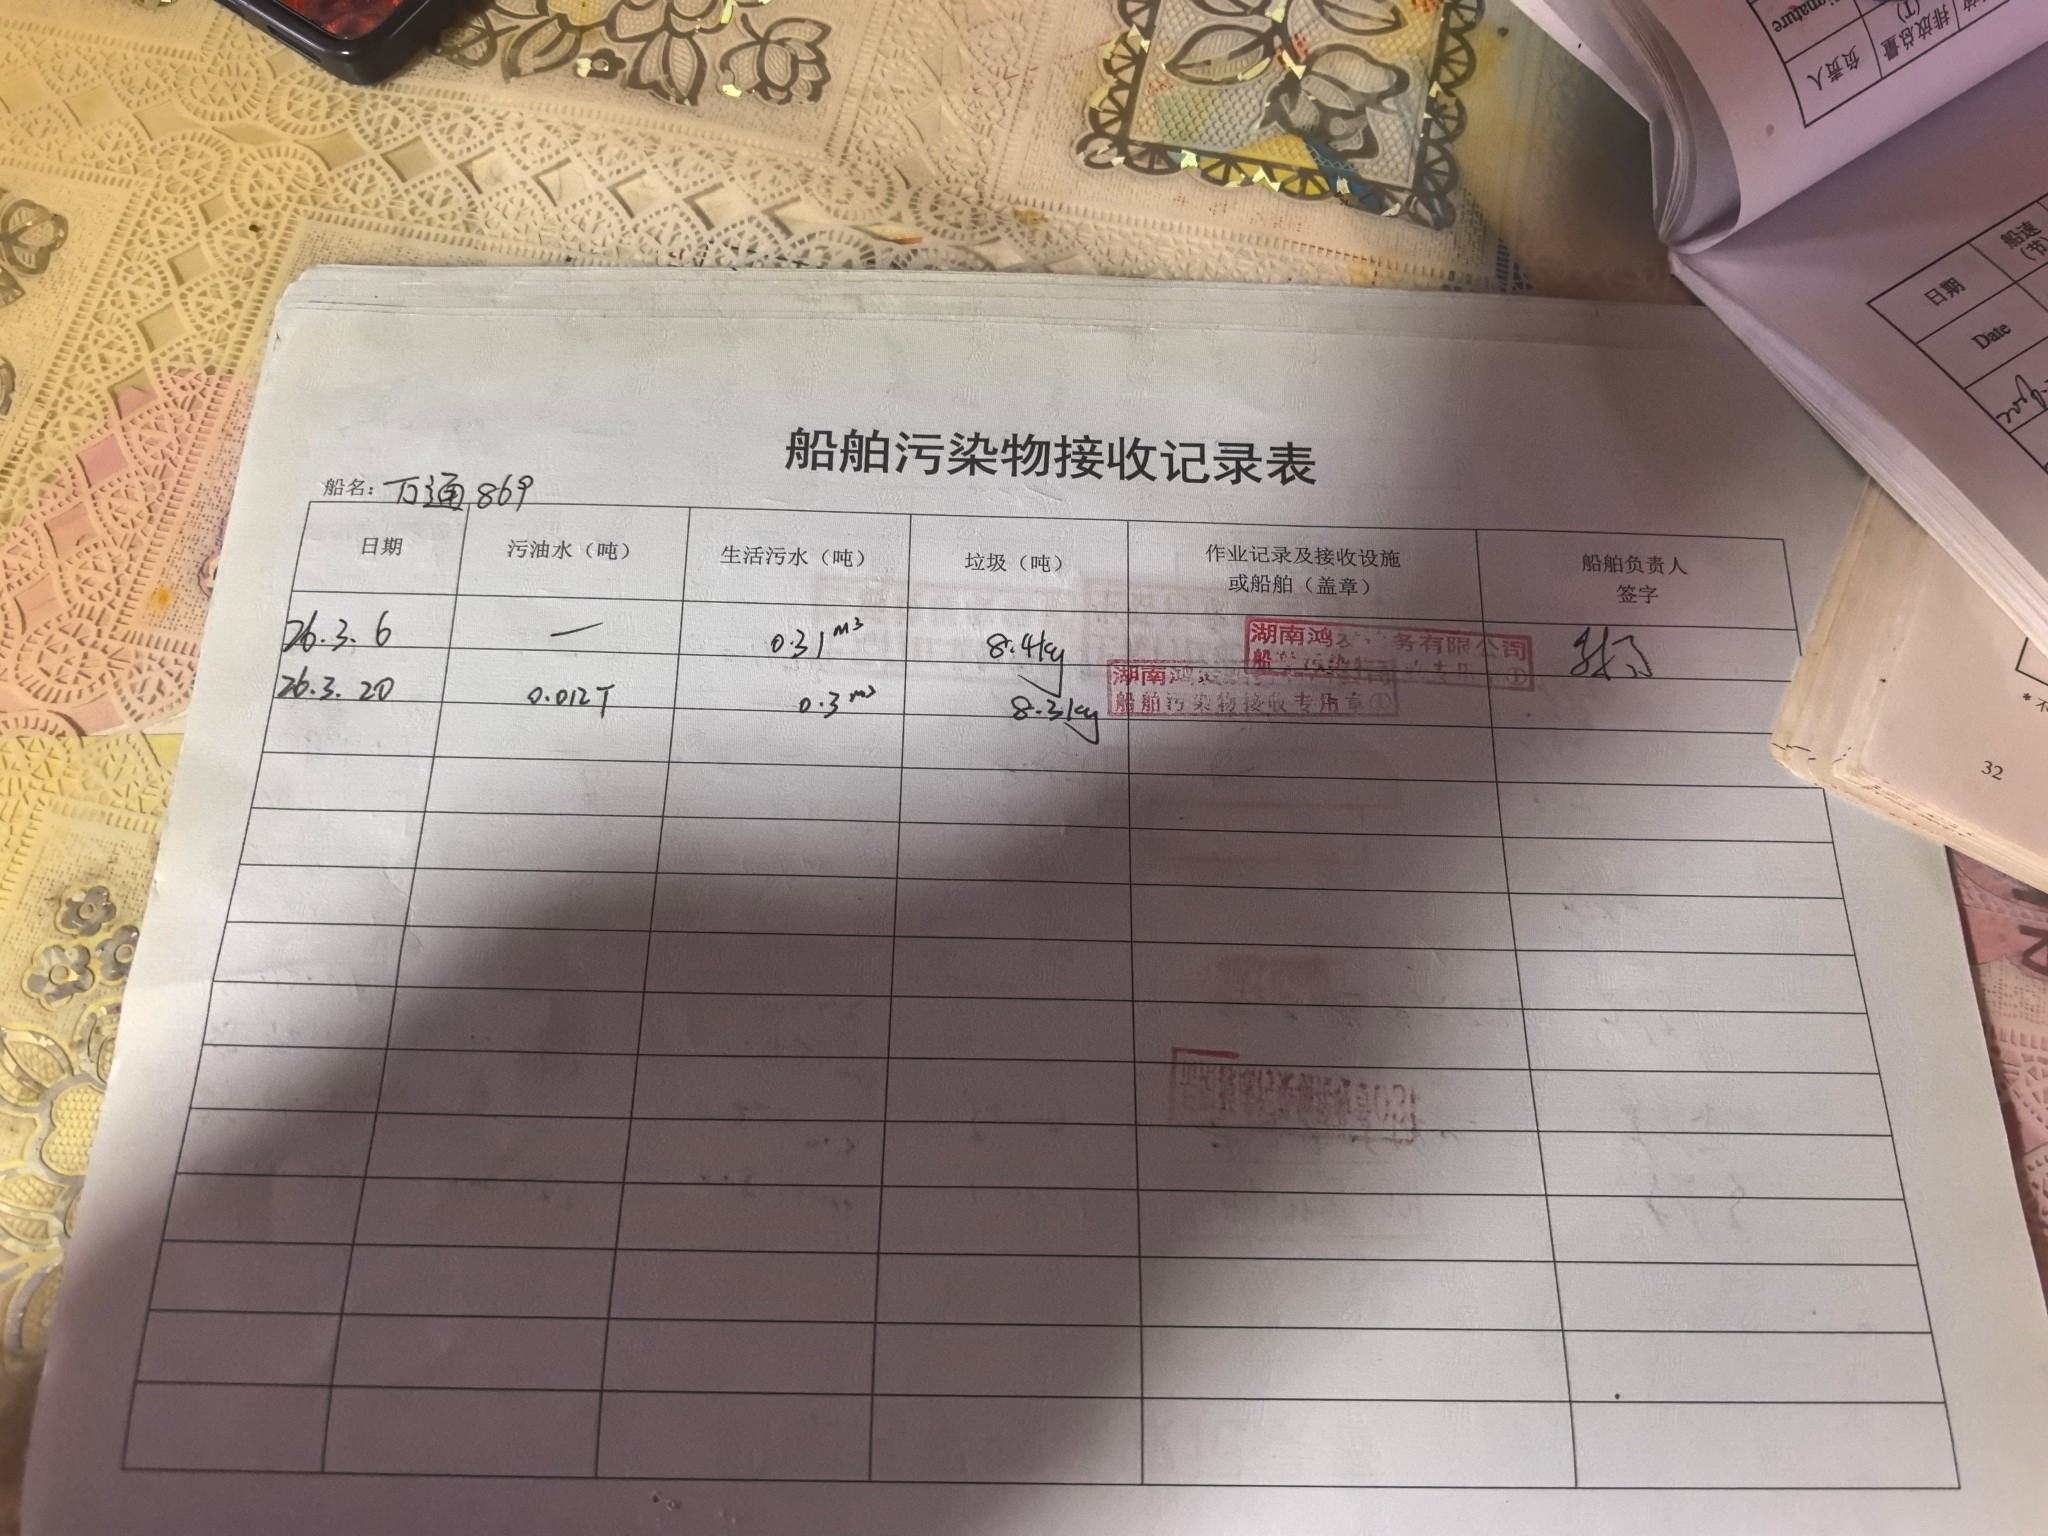 Signature
负责人
排放总量
(T)
日期
船速
Date
32
船舶污染物接收记录表
船名：万通869
日期 污油水（吨） 生活污水（吨） 垃圾（吨） 作业记录及接收设施 船舶负责人
或船舶（盖章） 签字
26.3.6 — 0.31m³ 8.4kg
湖南鸿 务有限公司
26.3.20 0.012T 0.3m³ 8.3kg
湖南鸿
船舶污染物接收专用章①